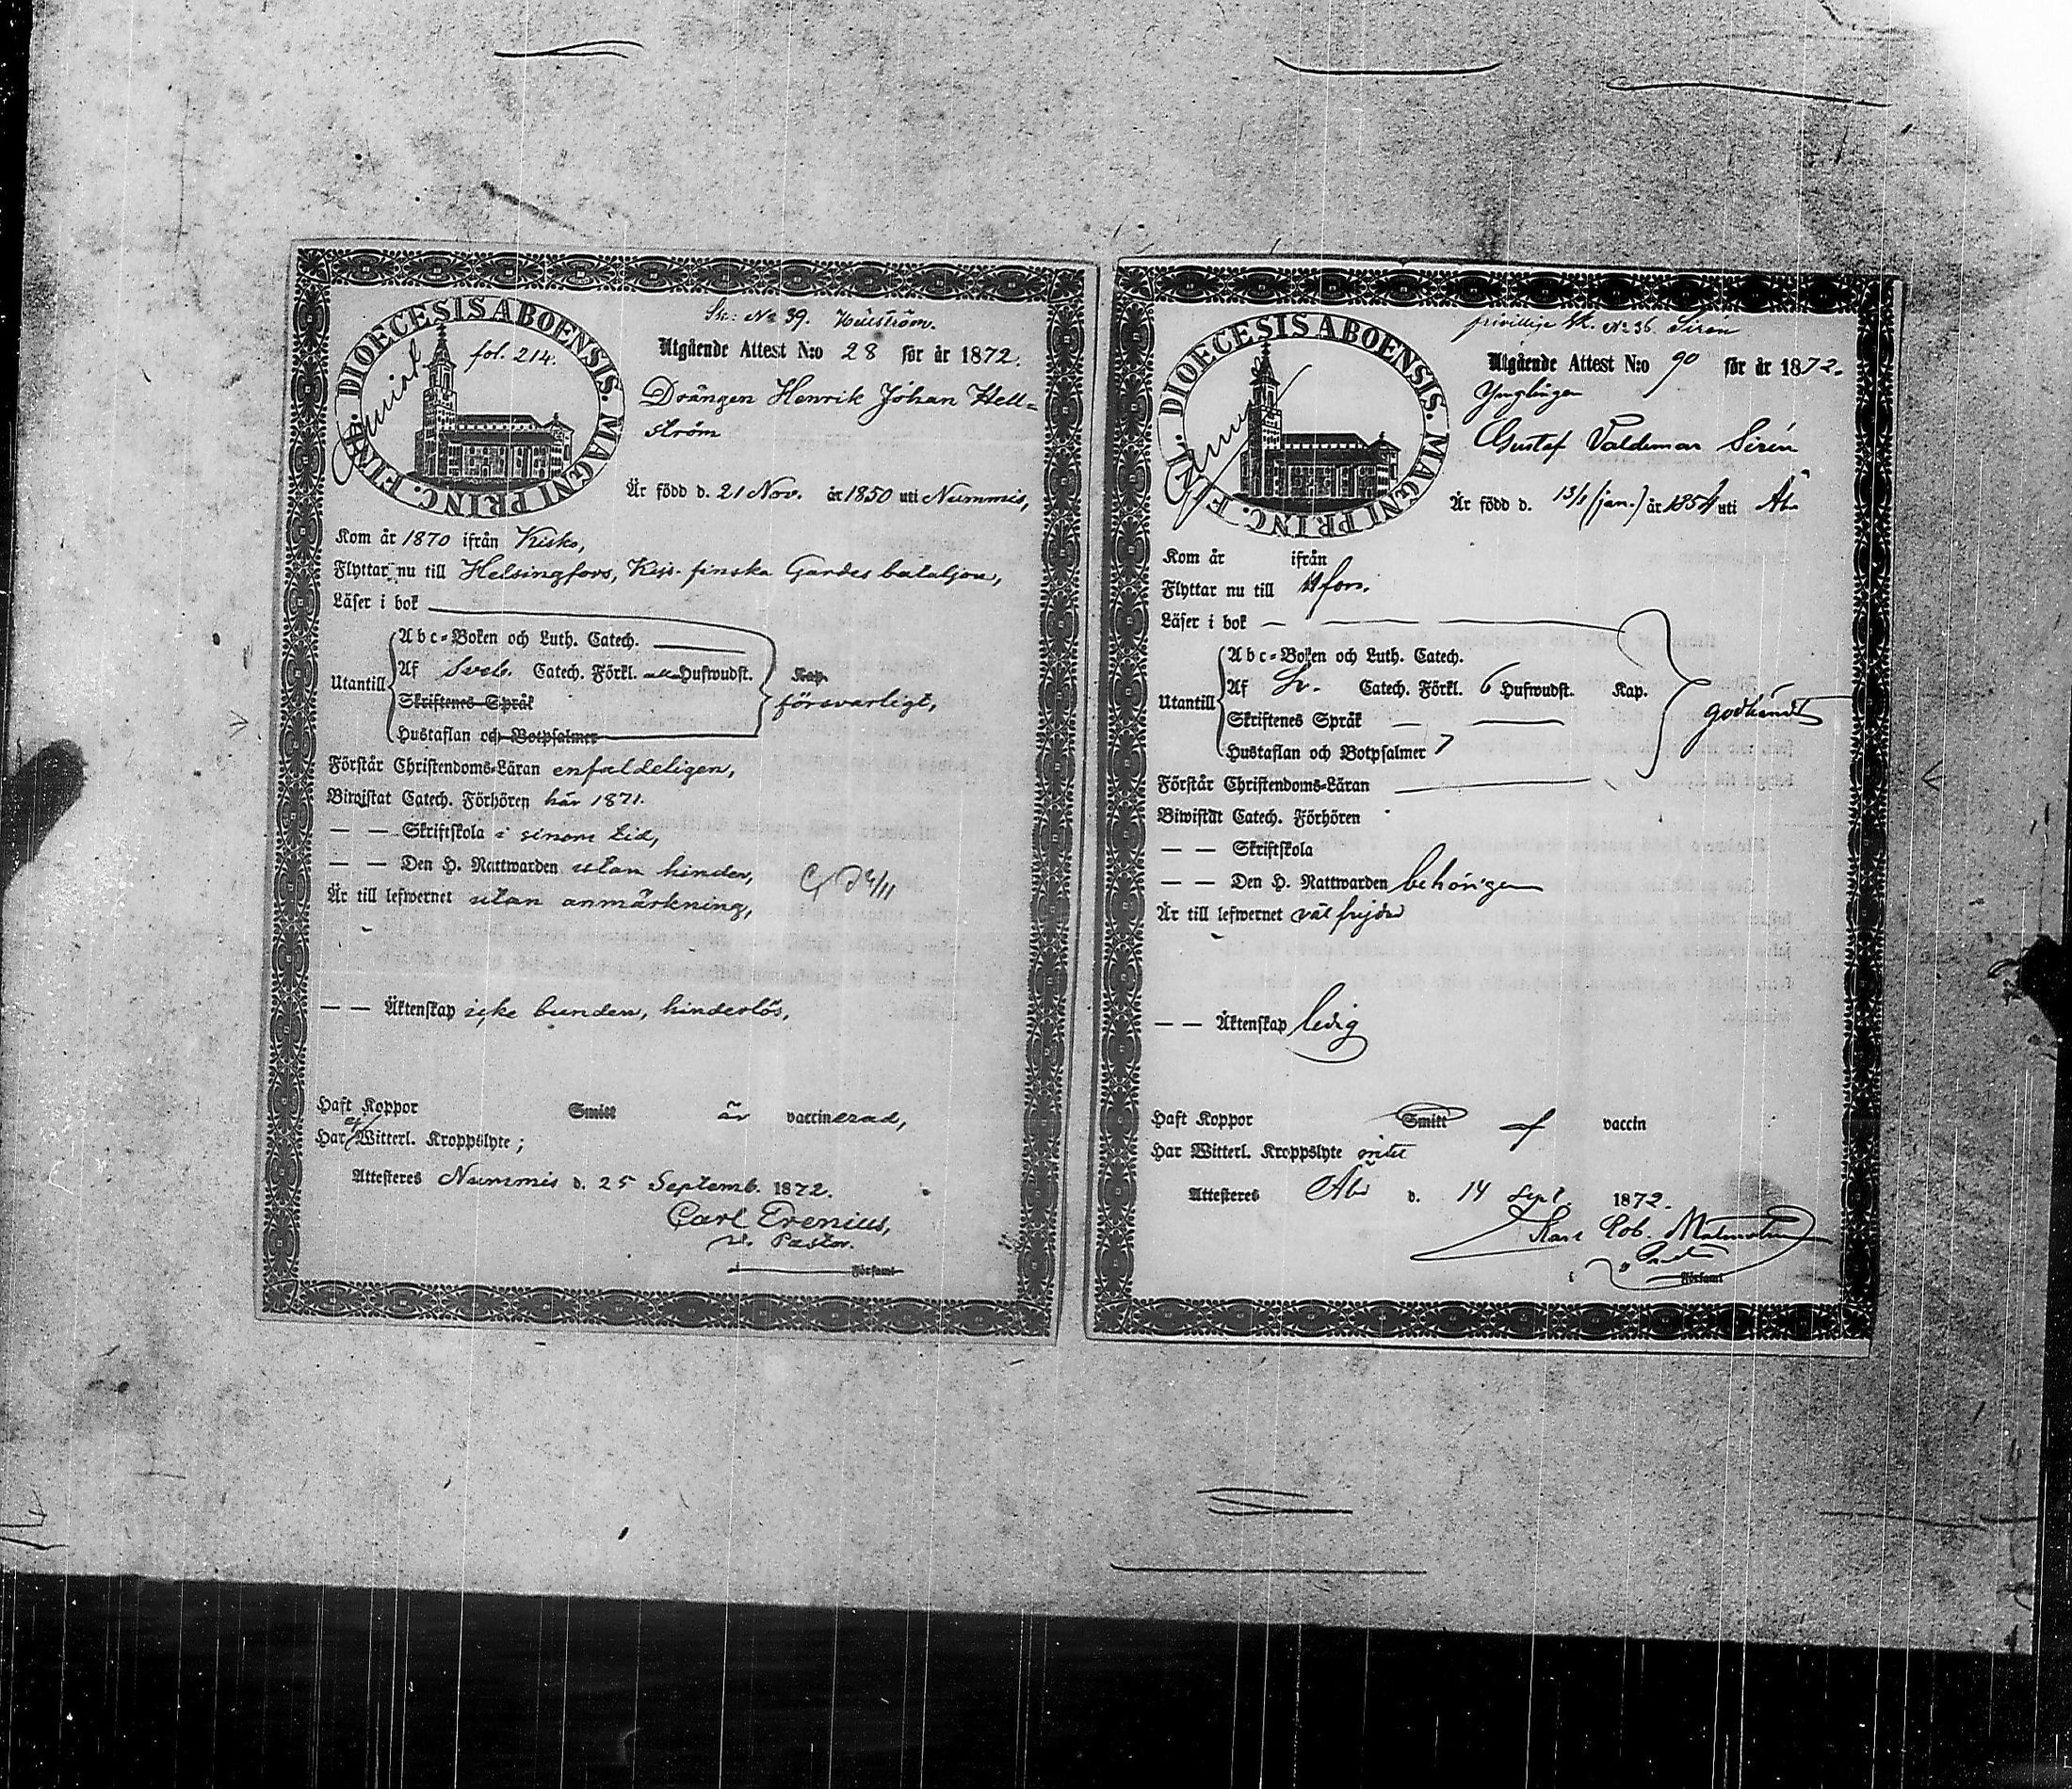 DIOECESIS ABOENSIS. MAGNI PRINC. FINL.
fol. 214.
Sk: No 39. Hellström.
Utgående Attest N:o 28 för år 1872.
Drängen Henrik Johan Hell=
ström
Är född d. 21 Nov. år 1850 uti Nummis,
Kom år 1870 ifrån Kisko,
Flyttar nu till Helsingfors, Kejs. finska Gardes bataljon,
Läser i bok
Abc-Boken och Luth. Catech.
Utantill
Af Sveb. Catech. Förkl. alla Hufwudst. Kap.
Skriftenes Språk
försvarligt,
Hustaflan och Botpsalmer
Förstår Christendoms-Läran enfaldeligen,
Biwistat Catech. Förhören här 1871.
— — Skriftskola i sinom tid,
— — Den H. Nattwarden utan hinder,
Är till lefwernet utan anmärkning,
— — Äktenskap icke bunden, hinderlös,
Haft Koppor Smitt är vaccinerad,
Har ej Witterl. Kroppslyte;
Attesteres Nummis d. 25 Septemb. 1872.
Carl Erenius,
v. Pastor.
i Församl
DIOECESIS ABOENSIS. MAGNI PRINC. FINL.
frivillige Sk. No 36. Sirén
Utgående Attest N:o 90 för år 1872.
Ynglingen
Gustaf Valdemar Sirén
Är född d. 13/1 (jan.) år 1854 uti Åbo
Kom år ifrån
Flyttar nu till Hfors.
Läser i bok
Abc-Boken och Luth. Catech.
Utantill
Af Sv. Catech. Förkl. 6 Hufwudst. Kap.
Skriftenes Språk
godkändt
Hustaflan och Botpsalmer 7
Förstår Christendoms-Läran
Biwistat Catech. Förhören
— — Skriftskola
— — Den H. Nattwarden behörigen
Är till lefwernet välfrejdad
— — Äktenskap ledig
Haft Koppor Smitt vaccin
Har Witterl. Kroppslyte intet
Attesteres Åbo d. 14 Sept. 1872.
i Församl